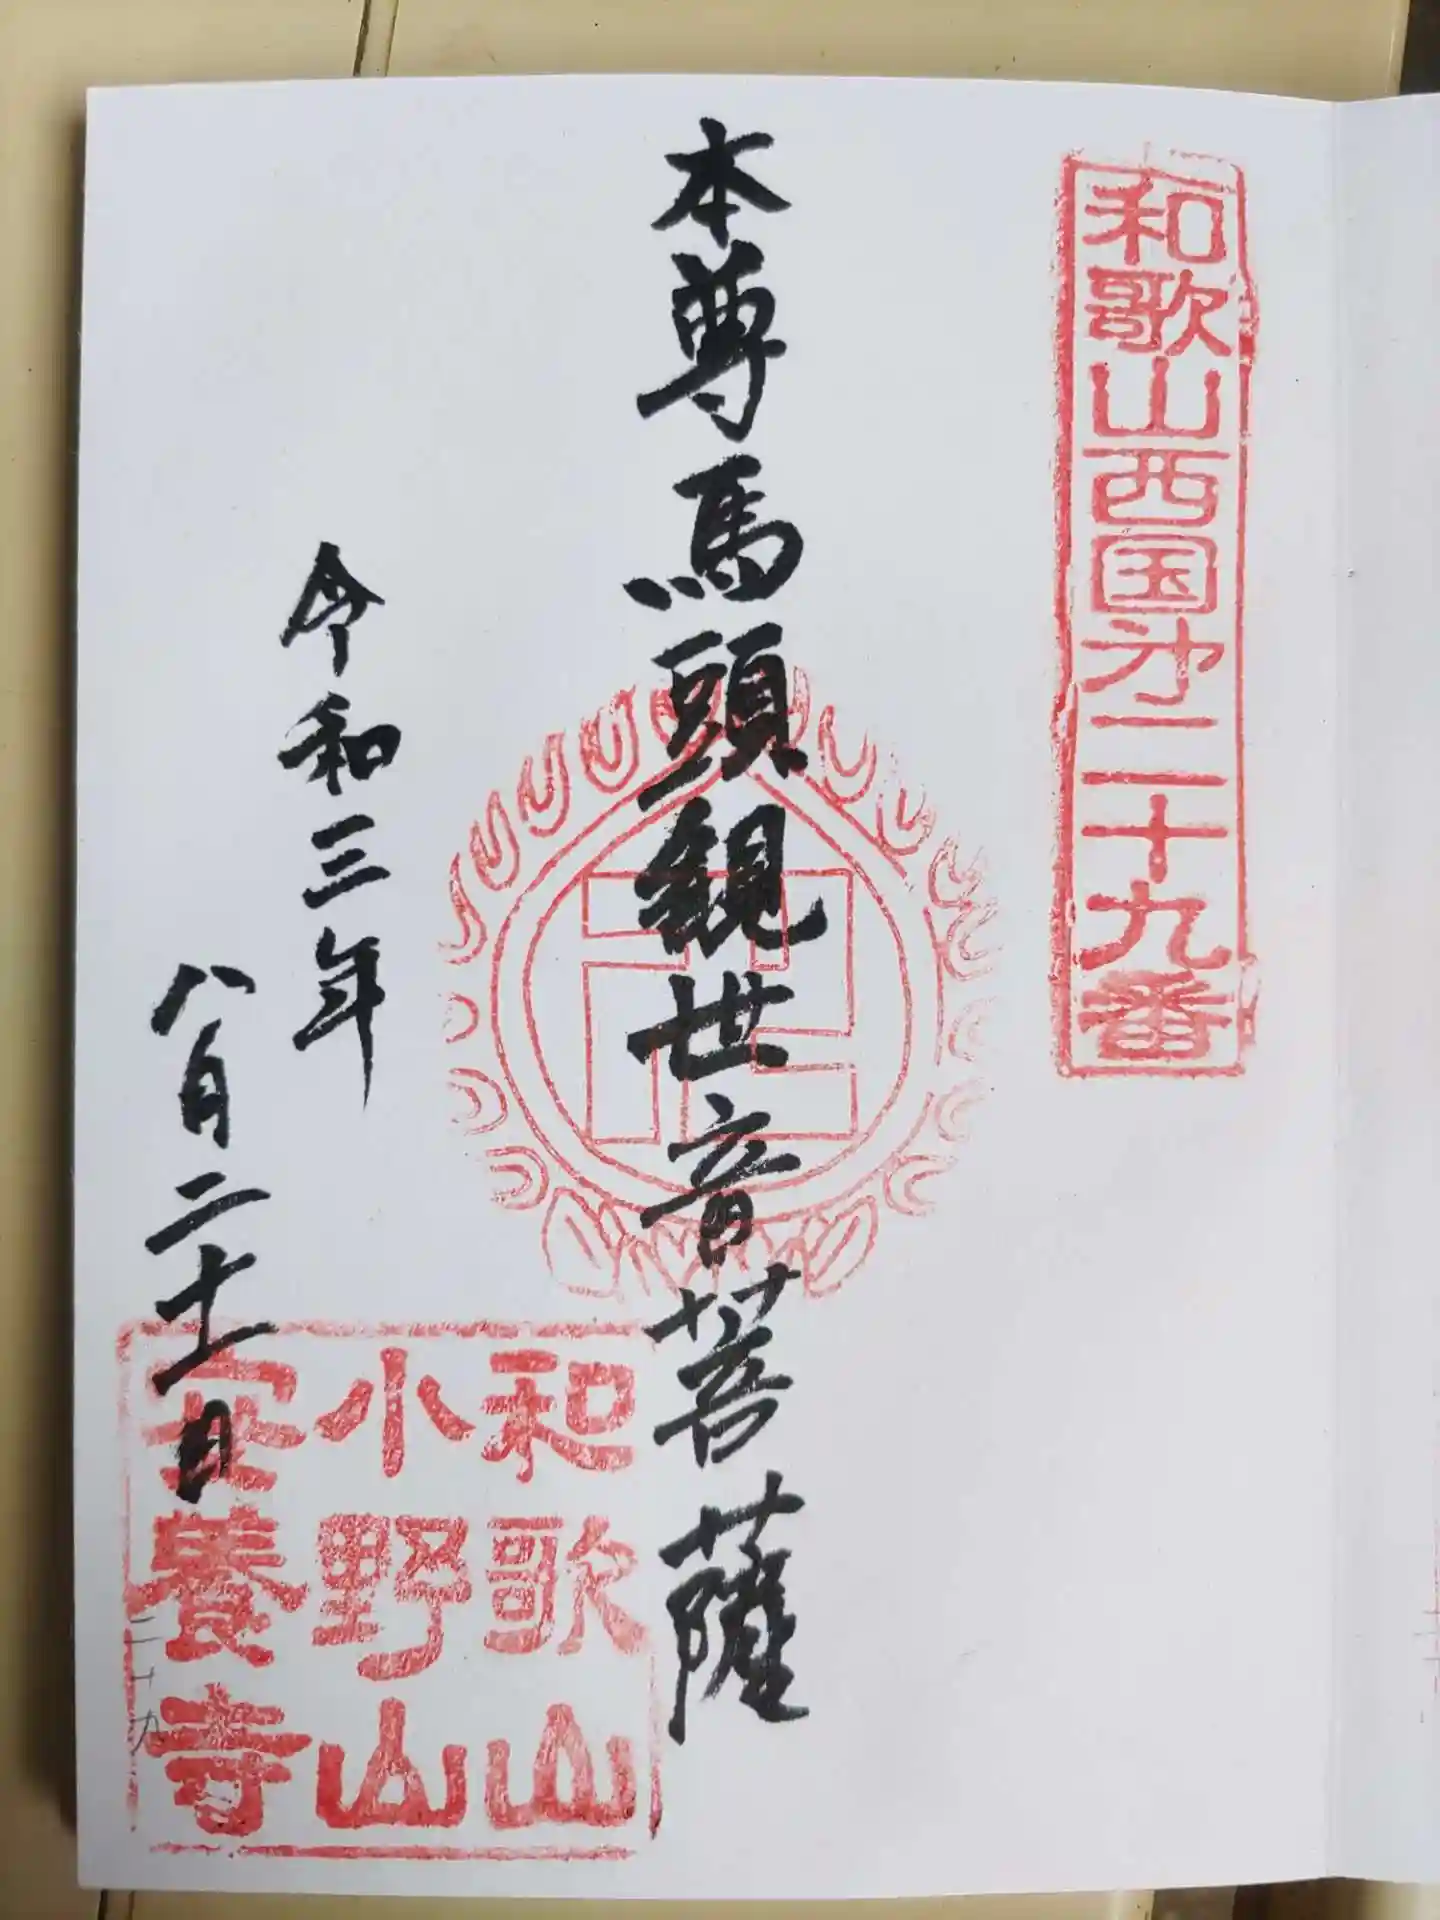 和歌山西国㐧二十九番
本尊馬頭観世音菩薩
令和三年
八月二十一日
和歌山
小野山
安養寺
二十九